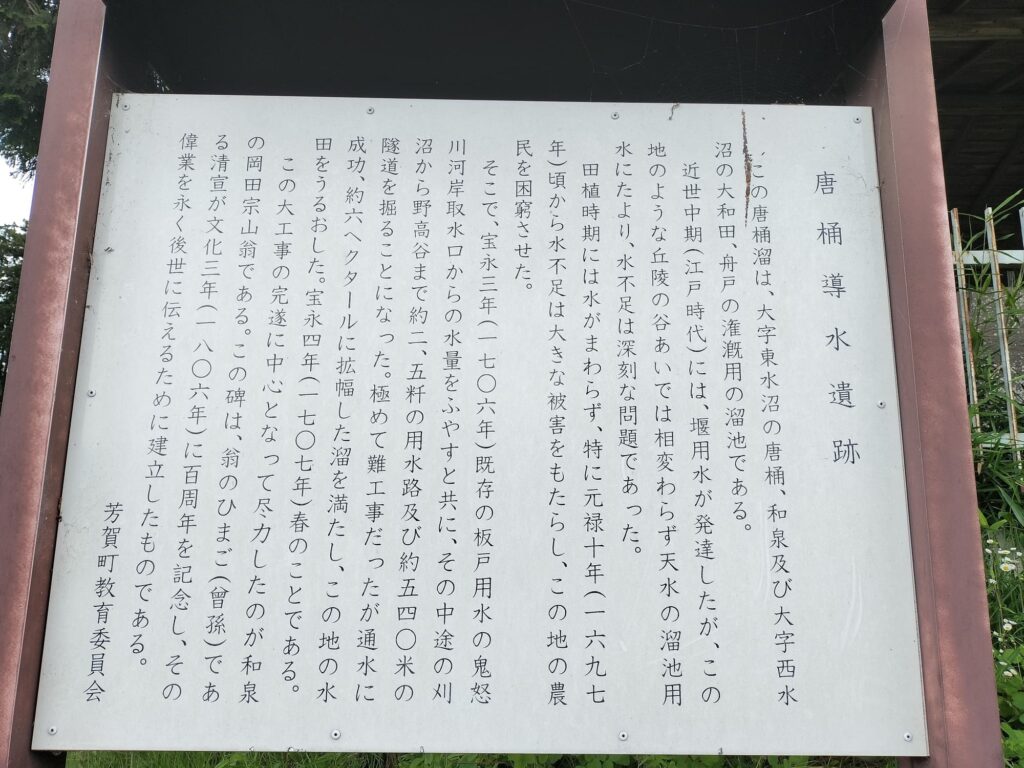 唐桶導水遺跡
この唐桶溜は、大字東水沼の唐桶、和泉及び大字西水
沼の大和田、舟戸の潅漑用の溜池である。
近世中期(江戸時代)には、堰用水が発達したが、この
地のような丘陵の谷あいでは相変わらず天水の溜池用
水にたより、水不足は深刻な問題であった。
田植時期には水がまわらず、特に元禄十年(一六九七
年)頃から水不足は大きな被害をもたらし、この地の農
民を困窮させた。
そこで、宝永三年(一七〇六年)既存の板戸用水の鬼怒
川河岸取水口からの水量をふやすと共に、その中途の刈
沼から野高谷まで約二、五粁の用水路及び約五四〇米の
隧道を掘ることになった。極めて難工事だったが通水に
成功、約六ヘクタールに拡幅した溜を満たし、この地の水
田をうるおした。宝永四年(一七〇七年)春のことである。
この大工事の完遂に中心となって尽力したのが和泉
の岡田宗山翁である。この碑は、翁のひまご(曾孫)であ
る清宣が文化三年(一八〇六年)に百周年を記念し、その
偉業を永く後世に伝えるために建立したものである。
芳賀町教育委員会